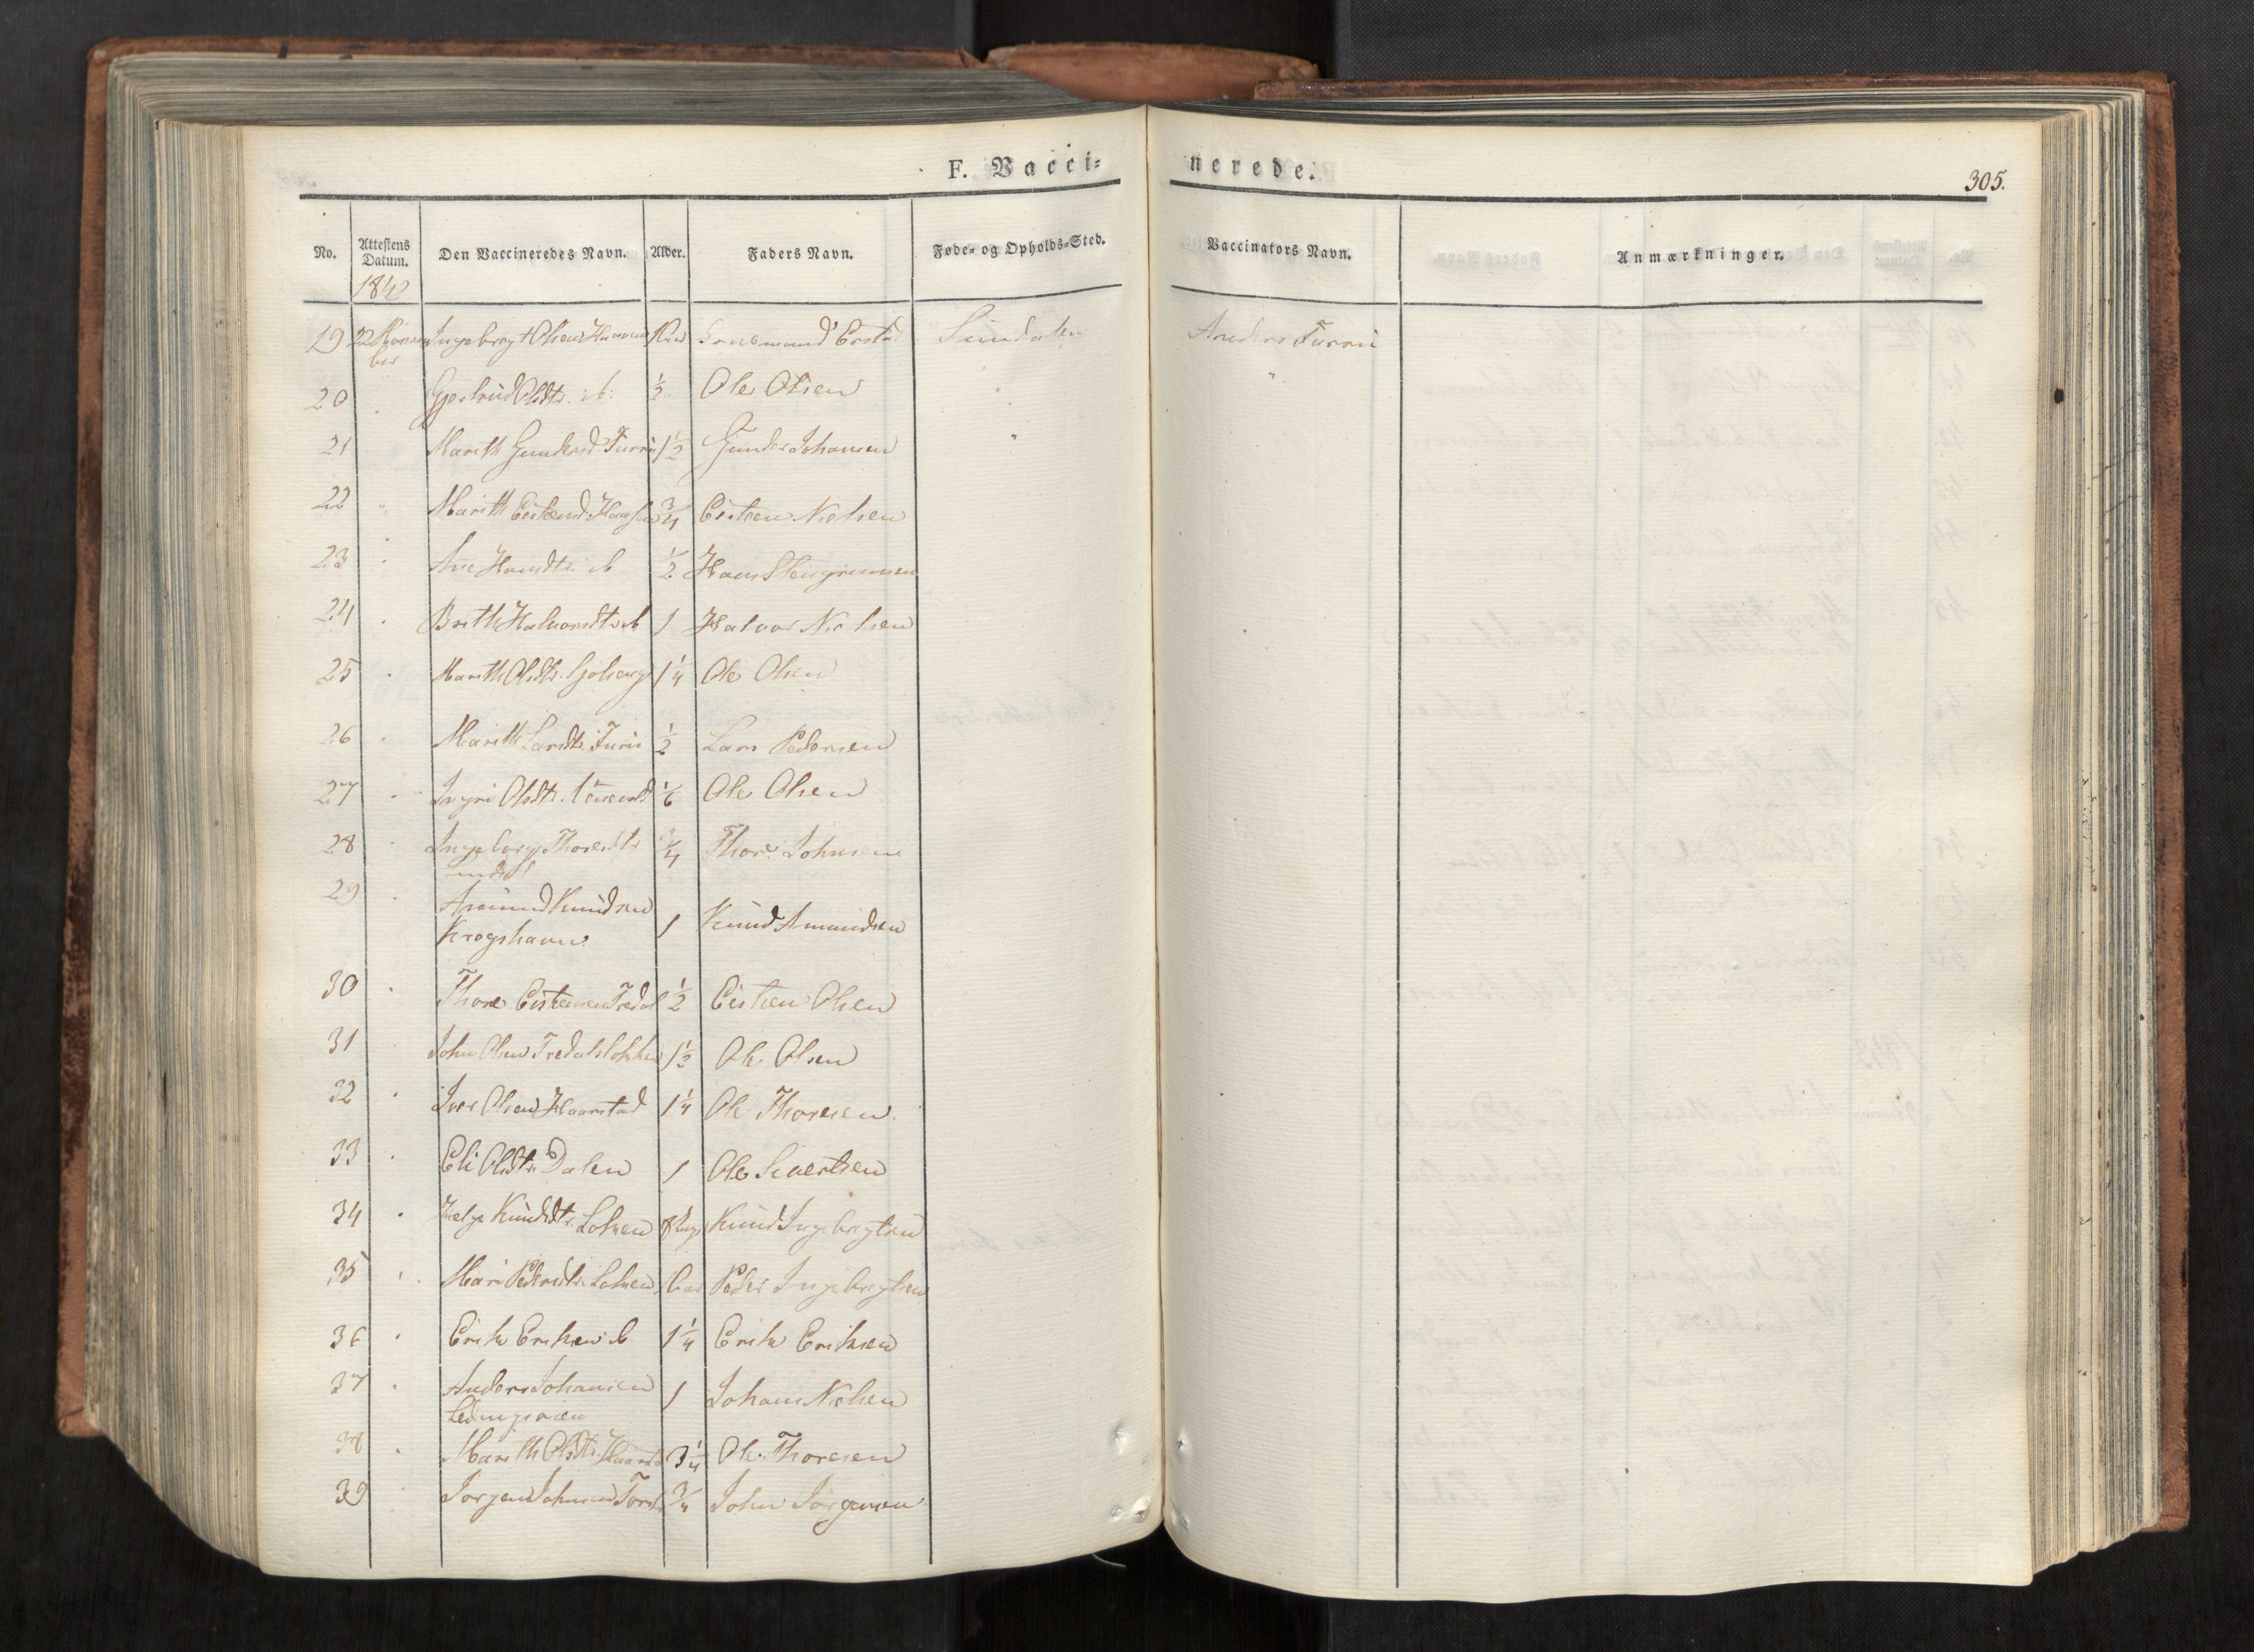 F. Vacci=
nerede.
305.
No. Attestens Datum. Den Vaccineredes Navn. Alder. Faders Navn. Føde- og Opholds-Sted. Vaccinators Navn. Anmærkninger.
1842
19 22 Ingebrigt Olsen Sundalen Anders Furru
20 Gjertrud Olsdtr. ib: ½ Ole Olsen
21 Marith Gundersd Furru 1½ Gunder Johansen
22 Marith ¾ Eisten Nielsen
23 Ane Hansdtr. ib ½ Hans
24 Brith Halvorsdtr ib 1 Halvor Nielsen
25 Marith Olsdtr. 1¼ Ole Olsen
26 Marith Larsdtr. Furu ½ Lars Pedersen
27 Ingri Olsdtr. 1/6 Ole Olsen
28 Ingeborg Thoresdtr ¾ Thore Johnsen
29 Amund Knudsen
Krogshavn 1 Knud Amundsen
30 Thore Eistensen Tredal ½ Eisten Olsen
31 John Olsen Tredalslokken 1½ Ole Olsen
32 Iver Olsen Haarstad 1¼ Ole Thoresen
33 Eli Olsdtr. Dalen 1 Ole Sivertsen
34 Knudsdtr. Loken Knud Ingebrigtsen
35 Mari Pedersdtr. Loken Peder Ingebrigtsen
36 Erik Eriksen ib 1¼ Erik Eriksen
37 Anders Johansen 1 Johans Nielsen
38 Marith Olsdtr. 3¼ Ole Thoresen
39 Jorgen Johnsen ¾ John Jörgensen